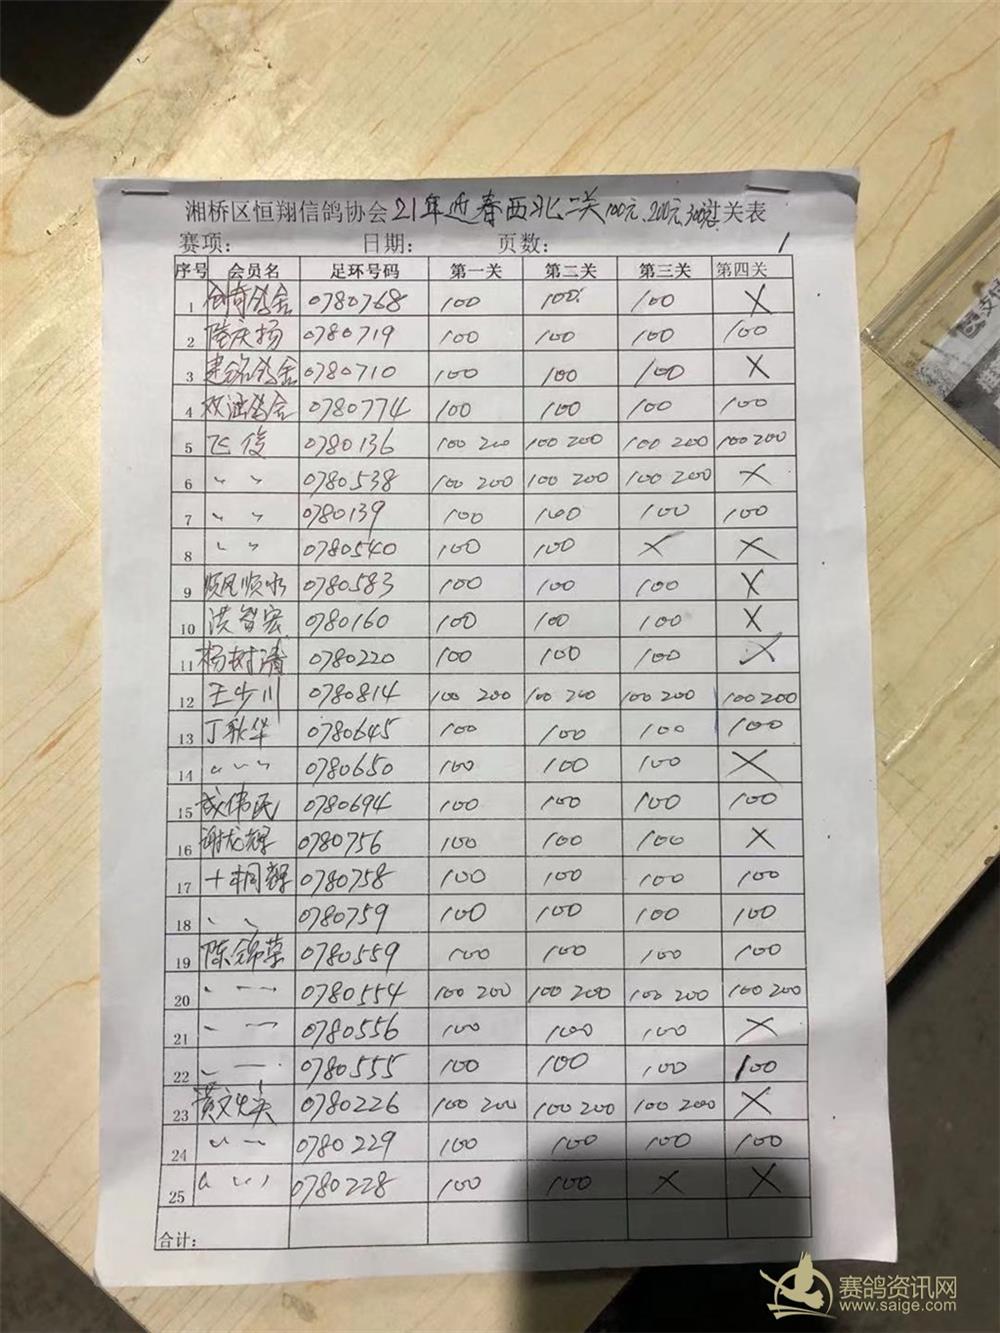 湘桥区恒翔信鸽协会21年迎春西北二关100元、200元、300元过关表
赛项： 日期： 页数： 1
序号 会员名 足环号码 第一关 第二关 第三关 第四关
1 创奇鸽舍 0780768 100 100 100 X
2 陆庆扬 0780719 100 100 100 100
3 建银鸽舍 0780710 100 100 100 X
4 双涵鸽舍 0780774 100 100 100 100
5 飞俊 0780136 100 200 100 200 100 200 100 200
6 〃 〃 0780538 100 200 100 200 100 200 X
7 〃 〃 0780139 100 100 100 100
8 〃 〃 0780540 100 100 X X
9 顺风顺水 0780583 100 100 100 X
10 洪智宏 0780160 100 100 100 X
11 杨树清 0780220 100 100 100 X
12 王少川 0780814 100 200 100 200 100 200 100 200
13 丁秋华 0780645 100 100 100 100
14 〃 〃 0780650 100 100 100 X
15 成伟民 0780694 100 100 100 100
16 谢龙辉 0780756 100 100 100 X
17 0780758 100 100 100 100
18 〃 〃 0780759 100 100 100 100
19 陈锦荣 0780559 100 100 100 100
20 〃 〃 0780554 100 200 100 200 100 200 100 200
21 〃 〃 0780556 100 100 100 X
22 〃 〃 0780555 100 100 100 100
23 黄文 0780226 100 200 100 200 100 200 X
24 〃 〃 0780229 100 100 100 100
25 〃 〃 0780228 100 100 X X
合计：
赛鸽资讯网
www.saige.com